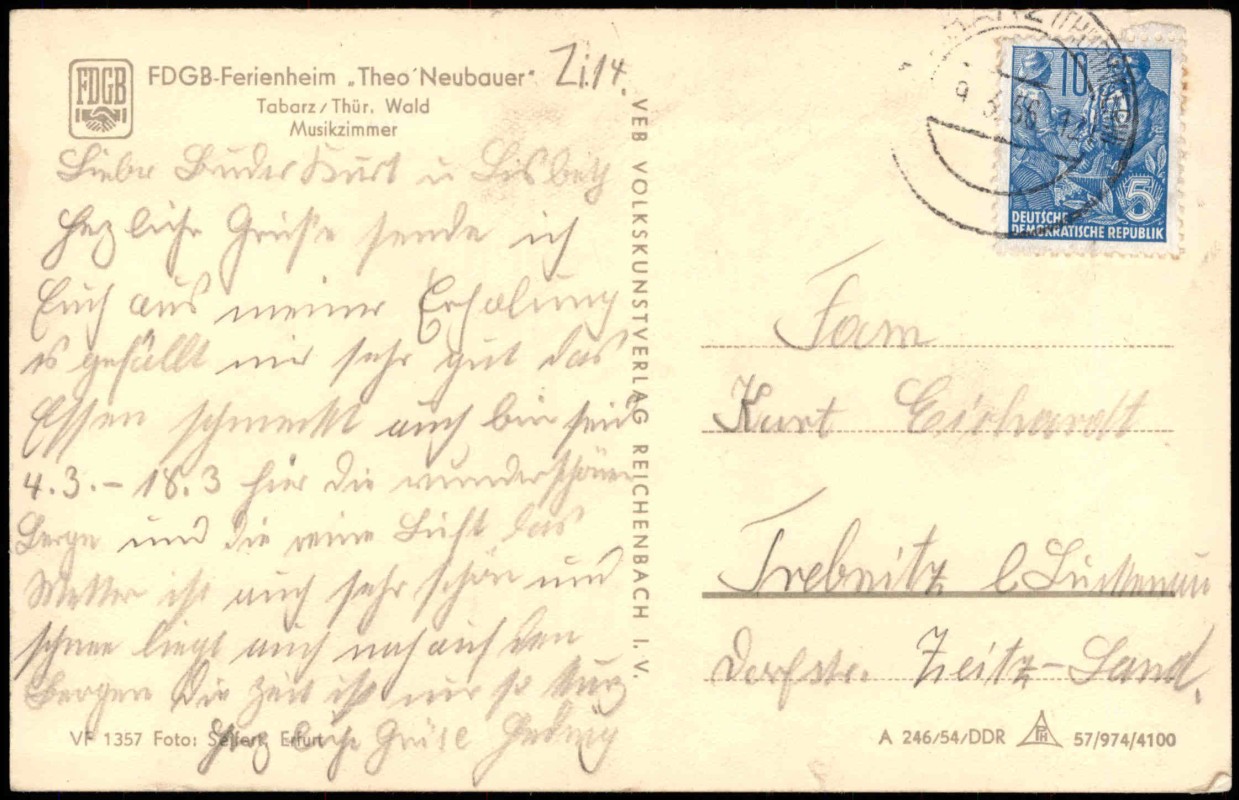 FDGB
FDGB-Ferienheim „Theo Neubauer“
Zi. 14.
Tabarz/Thür. Wald
Musikzimmer
Lieber Bruder Kurt u Lisbeth
Herzliche Grüße sende ich
Euch aus meiner Erholung
es gefällt mir sehr gut das
Essen schmeckt auch bin seid
4.3.-18.3 hier die wunderschönen
Berge und die reine Luft das
Wetter ist auch sehr schön und
schnee liegt auch noch auf den
Bergen Die Zeit ist nur so kurz
Herzliche Grüse Hedwig
VF 1357 Foto: Seifert, Erfurt
VEB VOLKSKUNSTVERLAG REICHENBACH I. V.
9.3.56
10
5
DEUTSCHE
DEMOKRATISCHE REPUBLIK
Fam
Kurt Eichardt
Trebnitz b Luckenau
Dorfstr. Zeitz-Land.
A 246/54/DDR
57/974/4100